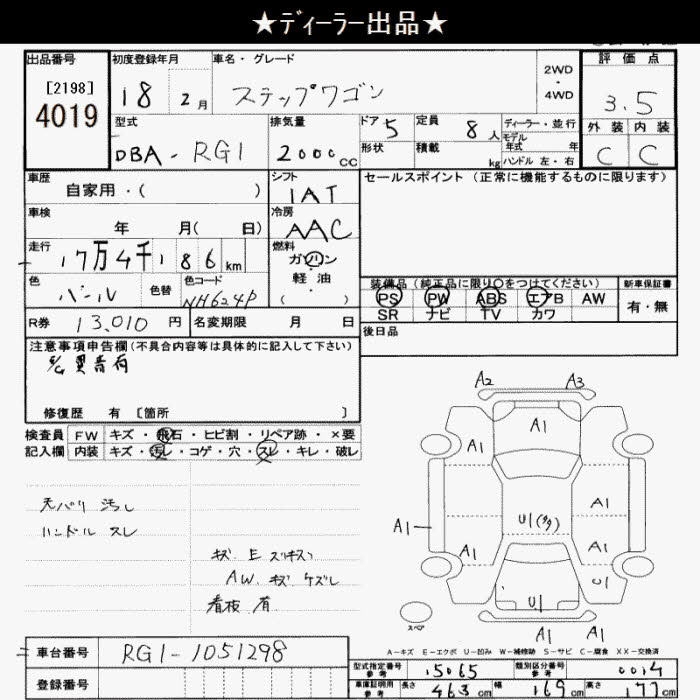 ★ディーラー出品★
出品番号 初度登録年月 車名・グレード 2WD・4WD 評価点
[2198]
4019
18 2月 ステップワゴン 3.5
型式 排気量 ドア 5 定員 8人 ディーラー・並行 外装 内装
DBA-RG1 2000cc 形状 積載 kg モデル年式 年 C C
ハンドル 左・右
車歴 シフト セールスポイント(正常に機能するものに限ります)
自家用・( ) IAT
車検 冷房
年 月( 日) AAC
走行 燃料
17万4千186km ガソリン・軽油
色 色替 色コード ( )
パール NH624P
装備品(純正品に限り〇をつけてください) 新車保証書
PS PW ABS エアB AW 有・無
SR ナビ TV カワ
R券 13,010円 名変期限 月 日
後日品
注意事項申告欄(不具合内容等は具体的に記入して下さい)
異音有
修復歴 有 [箇所 ]
検査員 FW キズ・飛石・ヒビ割・リペア跡・×要
記入欄 内装 キズ・汚レ・コゲ・穴・スレ・キレ・破レ
天バリ 汚レ
ハンドル スレ
キズ E スリキズ
AW. キズ ケズレ
看板 有
A2 A3
A1
A1 A1
A1
U1(多)
A1
A1 A1
U1
U1
A1 A1
スペア
A-キズ E-エクボ U-凹み W-補修跡 S-サビ C-腐食 XX-交換済
車台番号 RG1-1051298
登録番号
型式指定番号 参考 15065 類別区分番号 参考 0014
車庫証明用 参考 長さ 463cm 幅 169cm 高さ 177cm